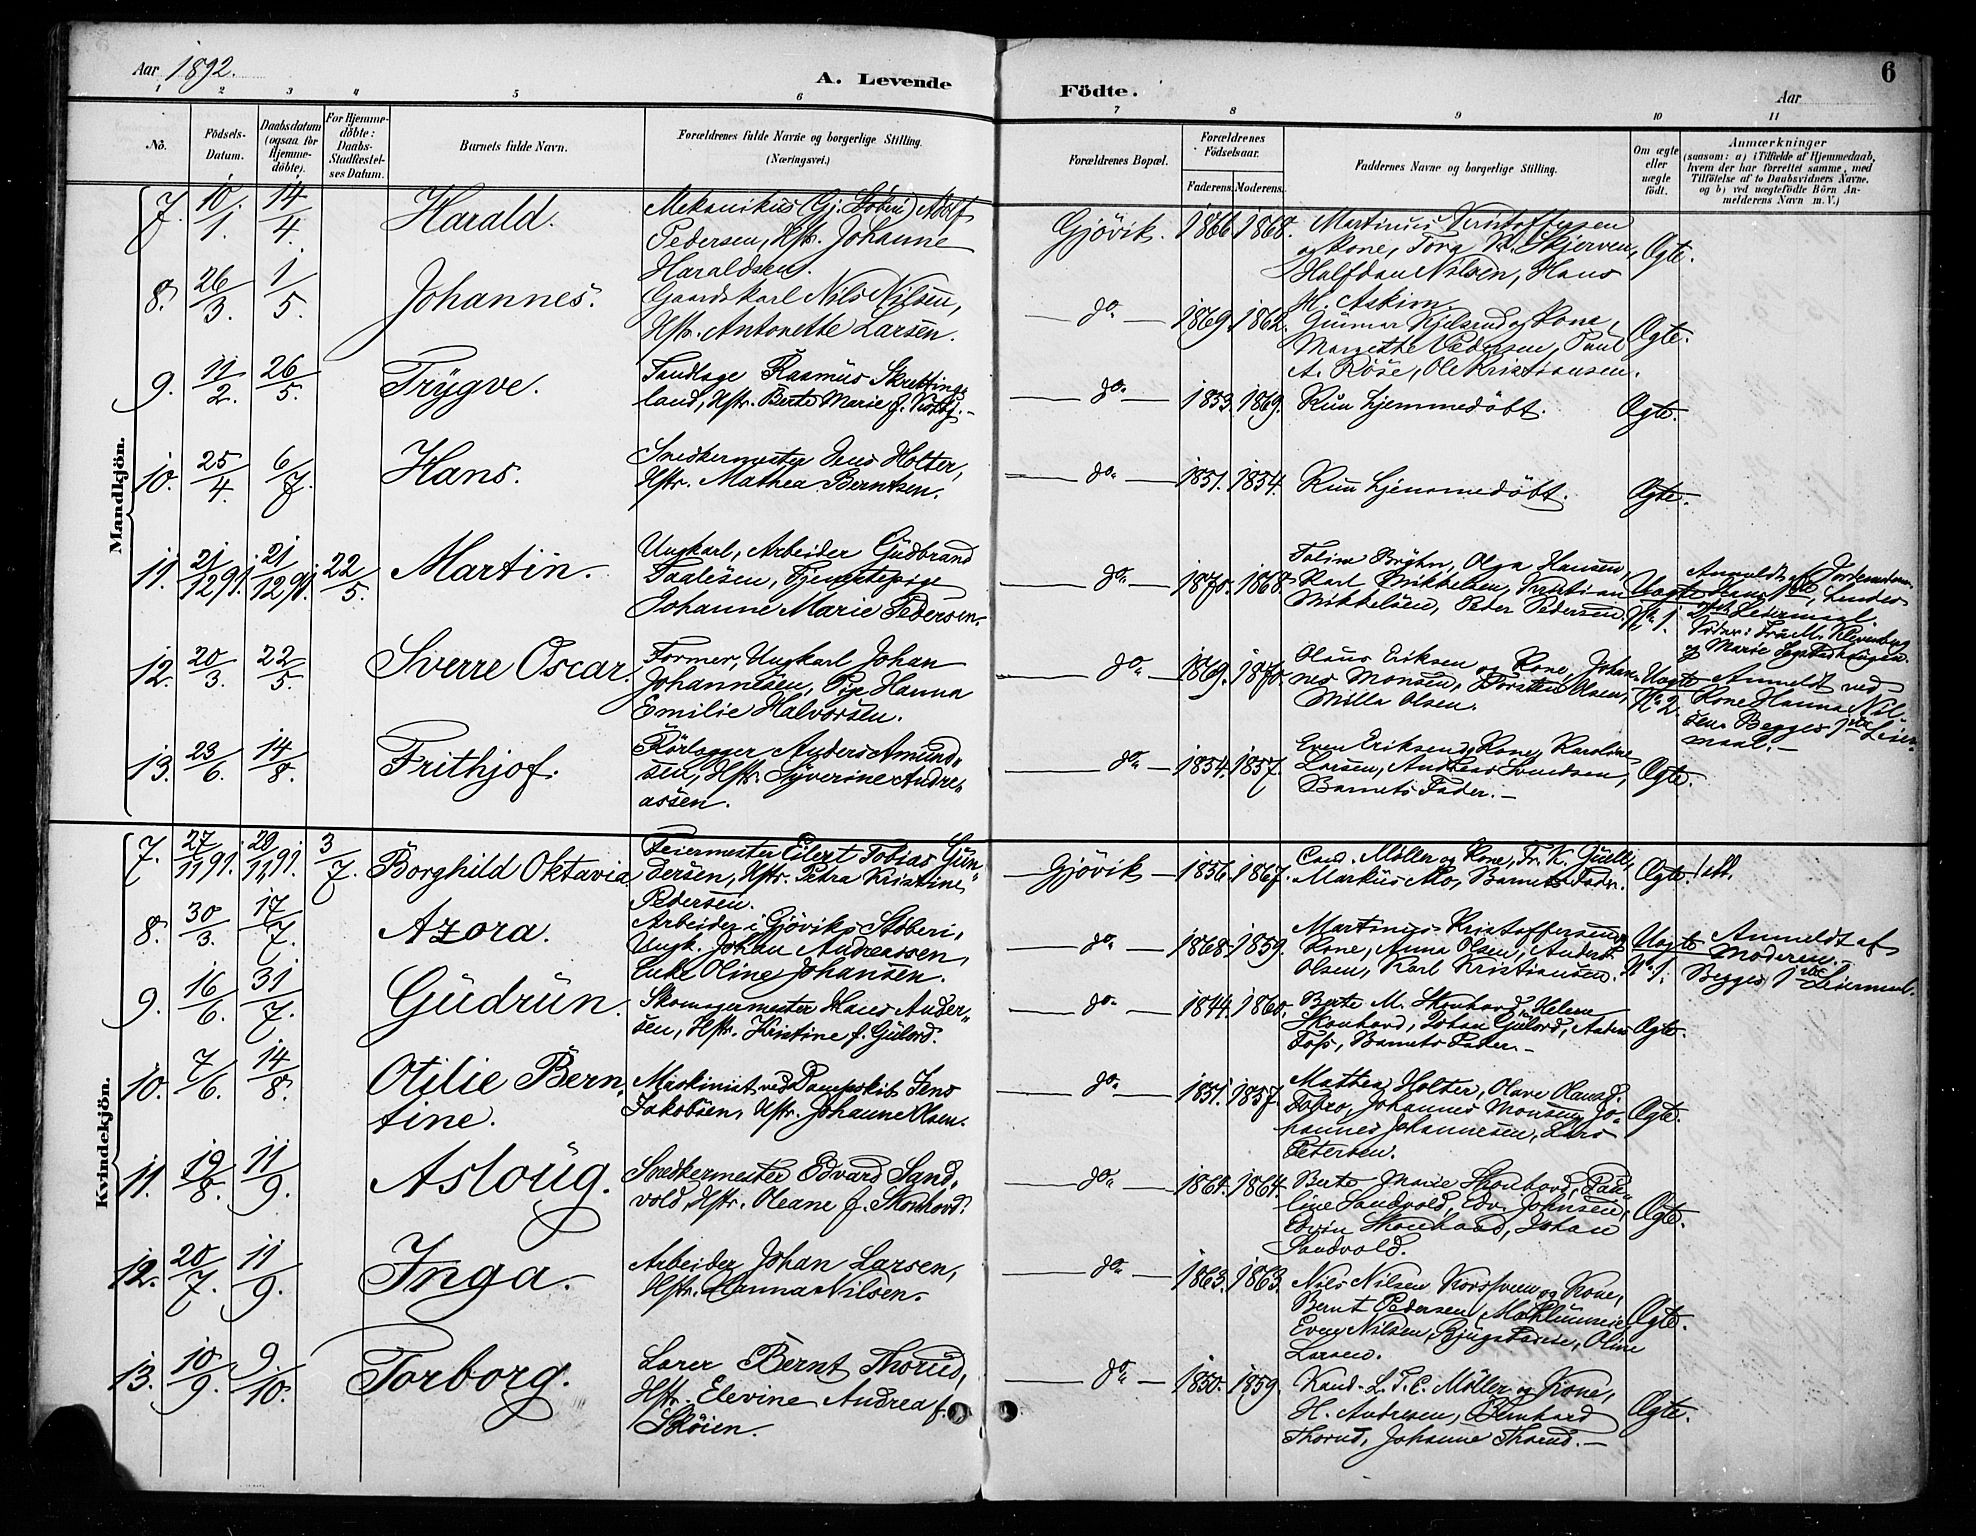 Aar 1892.
A. Levende
Födte.
Aar
6
1 2 3 4 5 6 7 8 9 10 11
No.
Födsels-
Datum.
Daabsdatum
(ogsaa for
Hjemme-
døbte).
For Hjemme-
døbte:
Daabs-
Stadfæstel-
ses Datum.
Barnets fulde Navn.
Forældrenes fulde Navne og borgerlige Stilling.
(Næringsvei.)
Forældrenes Bopæl.
Forældrenes
Fødselsaar.
Faderens. Moderens.
Faddernes Navne og borgerlige Stilling.
Om ægte
eller
uægte
født.
Anmærkninger
(saasom: a) i Tilfælde af Hjemmedaab,
hvem der har forrettet samme, med
Tilføielse af to Daabsvidners Navne,
og b) ved uægtefødte Börn An-
melderens Navn m. V.)
Mandkjön.
7. 10/1. 14/4. Harald.
Mekanikus (Gj. Støberi) Adolf
Pedersen, Hstr. Johanne
Haraldsen.
Gjövik. 1866 1868.
Martinus Kristoffersen
og Kone, Torg K. Skjerven,
Halfdan Nilsen, Hans
H. Askim.
Ægte.
8. 26/3. 1/5. Johannes.
Gaardskarl Nils Nilsen,
Hstr. Antonette Larsen.
do 1869. 1862.
Gunnar Kjelsrud og Kone,
Marethe Pedersen, Paul
A. Röse, Ole Kristiansen.
Ægte.
9. 11/2. 26/5. Trygve.
Rasmus Skrettings-
land, Hstr. Berte Marie f.
do 1853. 1869. Kun hjemmedöbt. Ægte.
10. 25/4. 6/7. Hans.
Snedkermester Jens Holter,
Hstr. Mathea Berntsen.
do 1851. 1854. Kun hjemmedöbt. Ægte.
11. 21/12 91. 21/12 91. 22/5. Martin.
Ungkarl, Arbeider Gudbrand
Paalsen, Tjenestepige
Johanne Marie Pedersen.
do 1870. 1868.
Olga Hansen,
Karl Mikkelsen, Kristian
Mikkelsen, Peder Pedersen.
Uægte
No 1.
Anmeldt af Jordemoderen
Leiermaal.
12. 20/3. 22/5. Sverre Oscar.
Former, Ungkarl Johan
Johannesen, Pige Hanna
Emilie Halvorsen.
do 1869. 1870.
Olaus Eriksen og Kone, Johan-
nes Monsen, Torsten Olsen,
Milla Olsen.
Uægte
No 2.
Anmeldt ved
Kone Hanna Nil-
sen. Begges 1ste Leier-
maal.
13. 23/6. 14/8. Frithjof.
Rörlægger Anders Amund-
sen, Hstr. Syverine Andre-
assen.
do 1854. 1857.
Even Eriksen og Kone, Karoline
Larsen, Andreas Svendsen,
Barnets Fader.
Ægte.
Kvindekjön.
7. 27/11 91. 29/11 91. 3/7. Borghild Oktavia
Feiermester Eilert Tobias Gun-
dersen, Hstr. Petra Kristine
Pedersen.
Gjövik 1856. 1867.
Cand. Möller og Kone, Fr. K.
Markus Mo, Barnets Fader.
Ægte. 1 att.
8. 30/3. 17/7. Azora.
Arbeider i Gjöviks Stöberi,
Ungk. Johan Andreassen,
Enke Oline Johansen.
do 1868. 1859.
Martinus Kristoffersen og
Kone, Anna Olsen, Anders
Olsen, Karl Kristiansen.
Uægte
No 1.
Anmeldt af
Moderen.
Begges 1ste Leiermaal.
9. 16/6. 31/7. Gudrun.
Skomagermester Hans Ander-
sen, Hstr. Kristine f. Gulord.
do 1844. 1860.
Berte M. Skonhovd, Helene
Skonhovd, Johan Gulord, Anders
Foss, Barnets Fader.
Ægte.
10. 7/6. 14/8. Otilie Bern-
tine.
Maskinist ved Dampskib Jens
Jakobsen, Hstr. Johanne Olsen.
do 1851. 1857.
Mathea Holter, Olave Olausd.
Fobro, Johannes Monsen, Jo-
hannes Johannesen, Lars
Petersen.
Ægte.
11. 19/8. 11/9. Asloug.
Snedkermester Edvard Sand-
vold, Hstr. Oleane f. Skonhovd.
do 1864. 1864.
Berte Marie Skonhovd, Pau-
line Sandvold, Edv. Johnsen,
Edvin Skonhovd, Johan
Sandvold.
Ægte.
12. 20/7. 11/9. Inga.
Arbeider Johan Larsen,
Hstr. Hanna Nilsen.
do 1863. 1863.
Nils Nilsen Korsveen og Kone,
Bernt Pedersen
Even Nilsen, Oline
Larsen.
Ægte.
13. 10/9. 9/10. Torborg.
Lærer Bernt Thorud,
Hstr. Elevine Andrea f.
Skøien.
do 1850. 1859.
Kand. L. T. C. Möller og Kone,
H. Andresen, Bernhard
Thorud, Johanne Thorud.
Ægte.